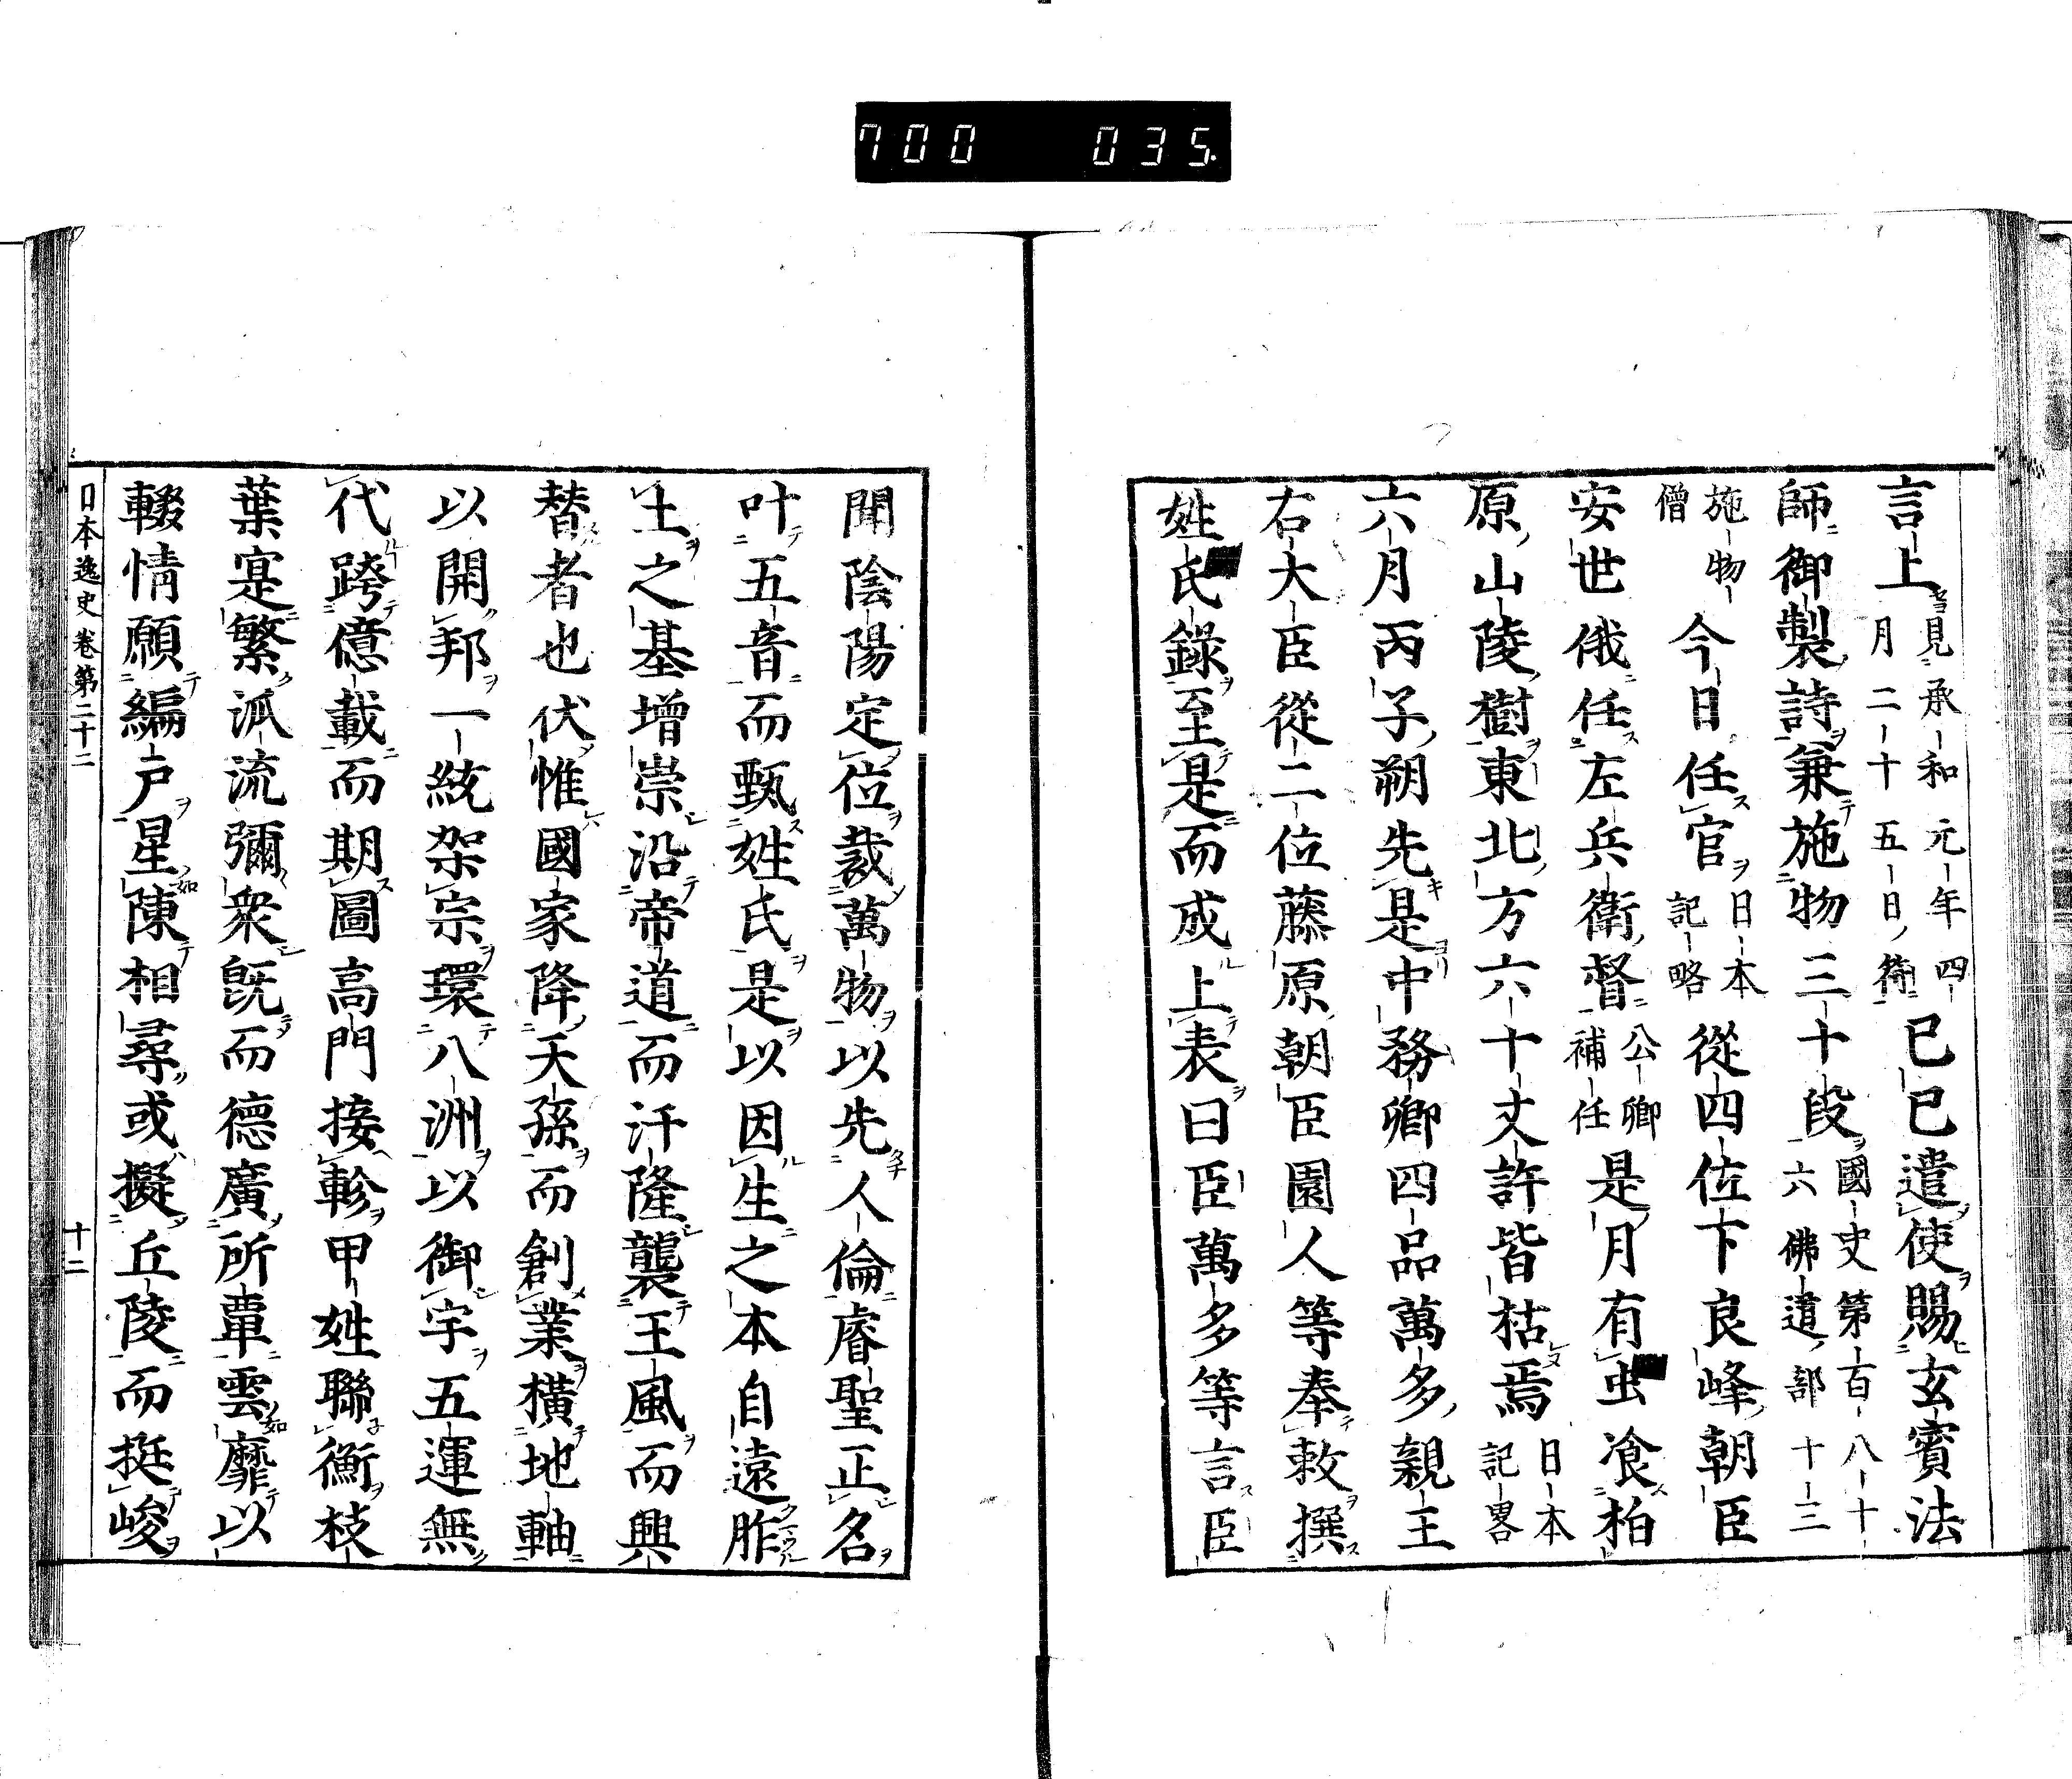 700 035
言上當見承和元年四月二十五日符己巳遣使賜玄賓法
師御製詩兼施物三十段國史第百八十六佛道部十三
施物僧今日任官日本記略從四佐下良峰朝臣
安世俄任左兵衛督公卿補任是月有虫飡柏
原山陵樹東北方六十丈許皆枯焉日本記畧
六月丙子朔先是中務卿四品萬多親王
右大臣從二位藤原朝臣園人等奉敕撰
姓氏錄至是而成上表曰臣萬多等言臣
聞陰陽定位裁萬物以先人倫睿聖正名
叶五音而甄姓氏是以因生之本自遠胙
土之基增崇沿帝道而汙隆襲王風而興
替者也伏惟國家降天孫而創業橫地軸
以開邦一統架宗環八洲以御宇五運無
代跨億載而期圖高門接軫甲姓聯衡枝
葉寔繁派流彌衆既而德廣所覃雲靡以
輟情願編戶星陳相尋或擬丘陵而挺峻
日本逸史卷第二十二 十二